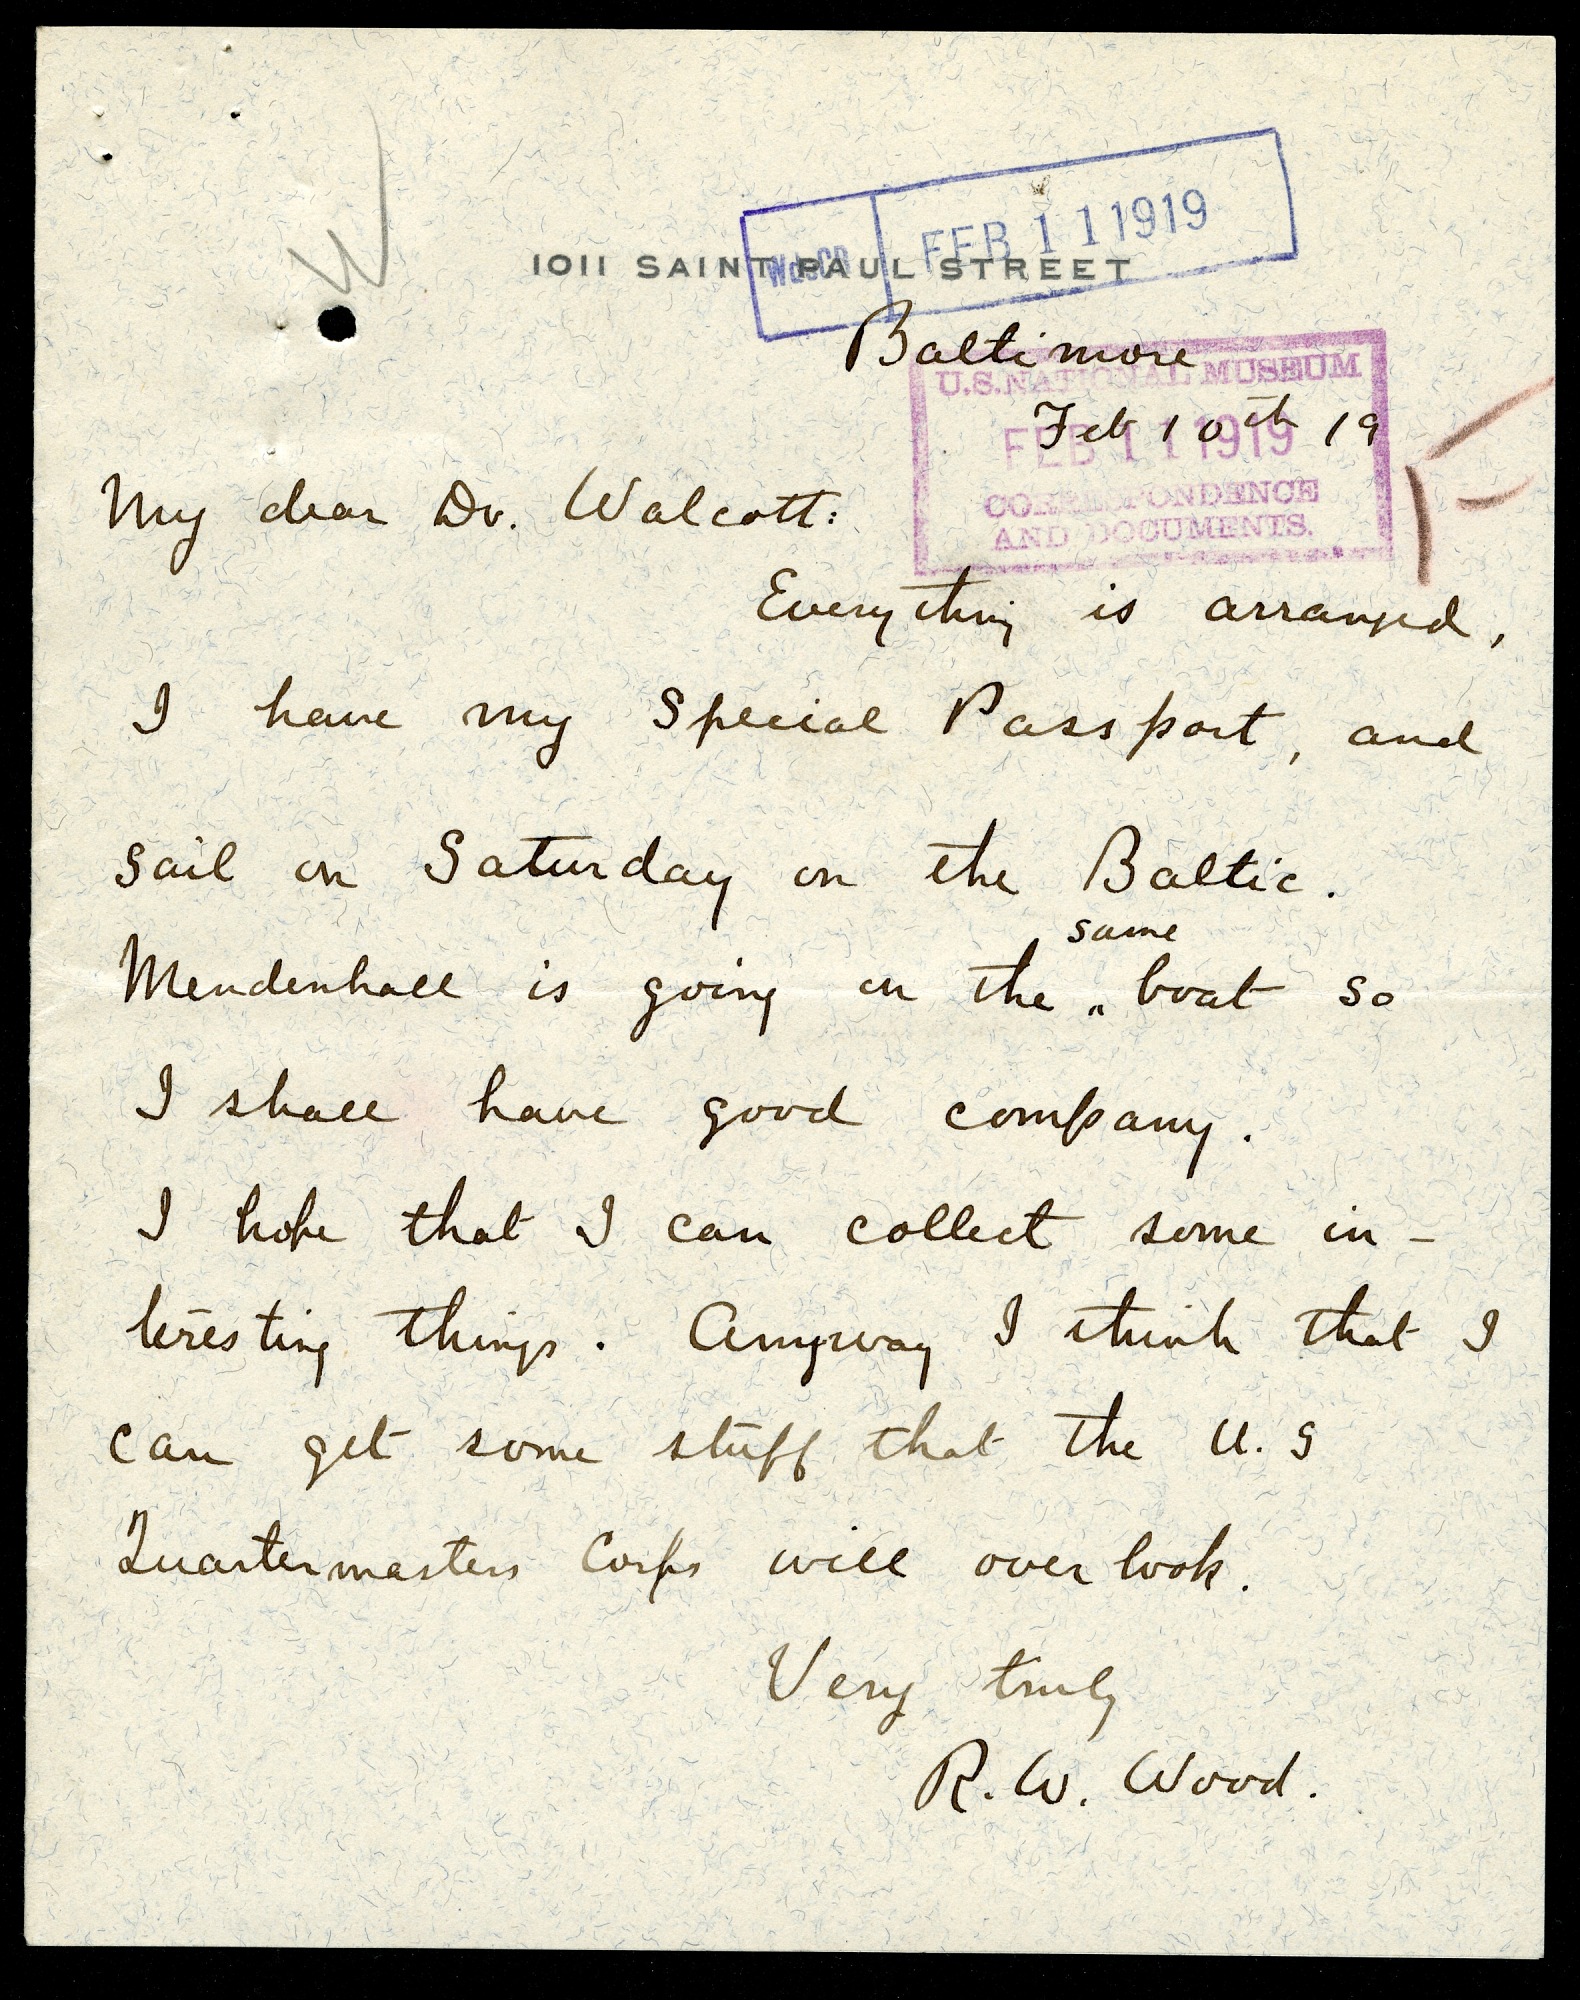 W
FEB 11 1919
1011 SAINT PAUL STREET
Baltimore
U.S. NATIONAL MUSEUM
FEB 11 1919
CORRESPONDENCE
AND DOCUMENTS.
Feb 10th 19
My dear Dr. Walcott:
Everything is arranged,
I have my Special Passport, and
sail on Saturday on the Baltic.
same
Mendenhall is going on the ‸ boat so
I shall have good company.
I hope that I can collect some in-
teresting things. Anyway I think that I
can get some stuff that the U. S
Quartermasters Corps will overlook.
Very truly
R. W. Wood.